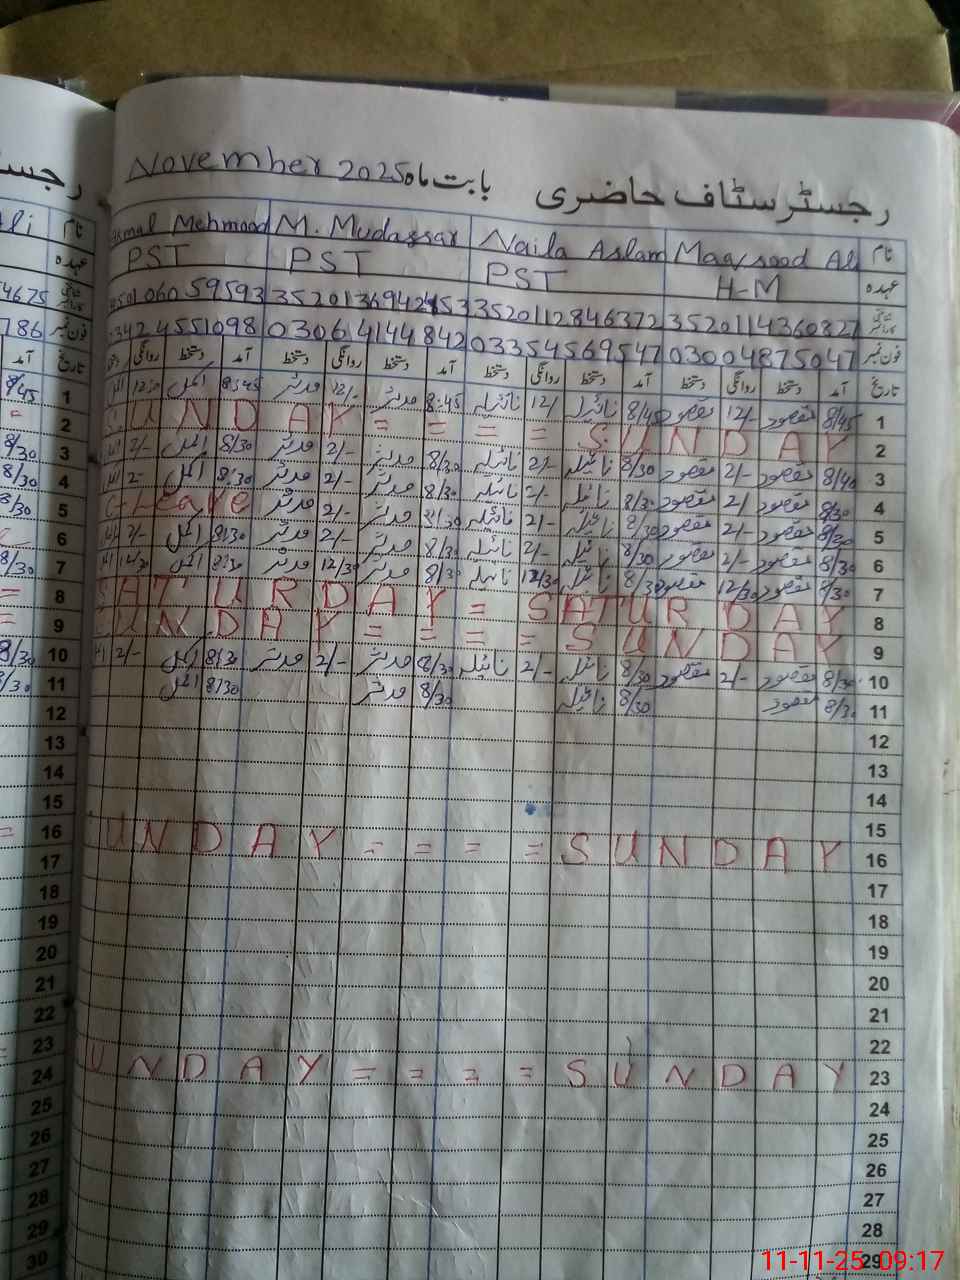 رجسٹر سٹاف حاضری بابت ماہ November 2025
نام Maqsood Ali Naila Aslam M. Mudassar Akmal Mehmood
عہدہ H-M PST PST PST
شناختی کارڈ نمبر 3520114360827 3520112846372
فون نمبر 03004875047 03354569547 03061414842
تاریخ آمد دستخط روانگی دستخط آمد دستخط روانگی دستخط آمد دستخط روانگی دستخط آمد دستخط روانگی
1 8/45 مقصود 12/- مقصود 8/45 نائیلہ 12/ نائیلہ 8:45 مدثر 12/- مدثر 8:45 اکمل
2 SUNDAY = = = = SUNDAY
3 8/40 مقصود 2/- مقصود 8/30 نائیلہ 2/- نائیلہ 8/30 مدثر 2/- مدثر 8/30 اکمل 2/-
4 8/30 مقصود 2/ مقصود 8/30 نائیلہ 2/- نائیلہ 8/30 مدثر 2/- مدثر 8/30 اکمل 2-
5 8/30 مقصود 2/- مقصود 8/30 نائیلہ 2/- نائیلہ 8/30 مدثر 2/- مدثر C-Leave
6 8/30 مقصود 2/- مقصود 8/30 نائیلہ 2/- نائیلہ 8/30 مدثر 2/- مدثر 8/30 اکمل 2/-
7 8/30 مقصود 12/30 مقصود 8/30 نائیلہ 12/30 نائیلہ 8/30 مدثر 12/30 مدثر 8/30 اکمل 12/30
8 SATURDAY = SATURDAY
9 SUNDAY = = = = SUNDAY
10 8/30 مقصود 2/- مقصود 8/30 نائیلہ 2/- نائیلہ 8/30 مدثر 2/- مدثر 8/30 اکمل 2/-
11 8/30 مقصود 8/30 نائیلہ 8/30 مدثر 8/30 اکمل
12
13
14
15
16 SUNDAY = = = = SUNDAY
17
18
19
20
21
22
23 SUNDAY = = = = SUNDAY
24
25
26
27
28
29
11-11-25 09:17